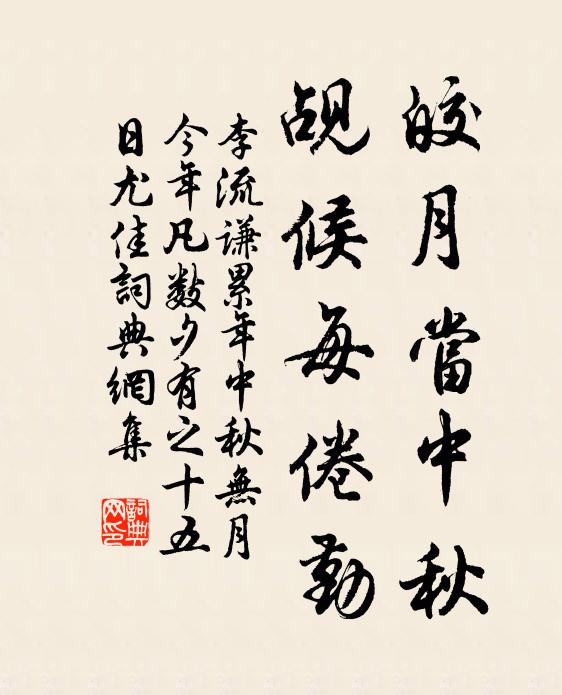 皎月當中秋
覘候每倦勤
李流謙累年中秋無月
今年凡數夕有之十五
日尤佳詞典網集
詞典
网印